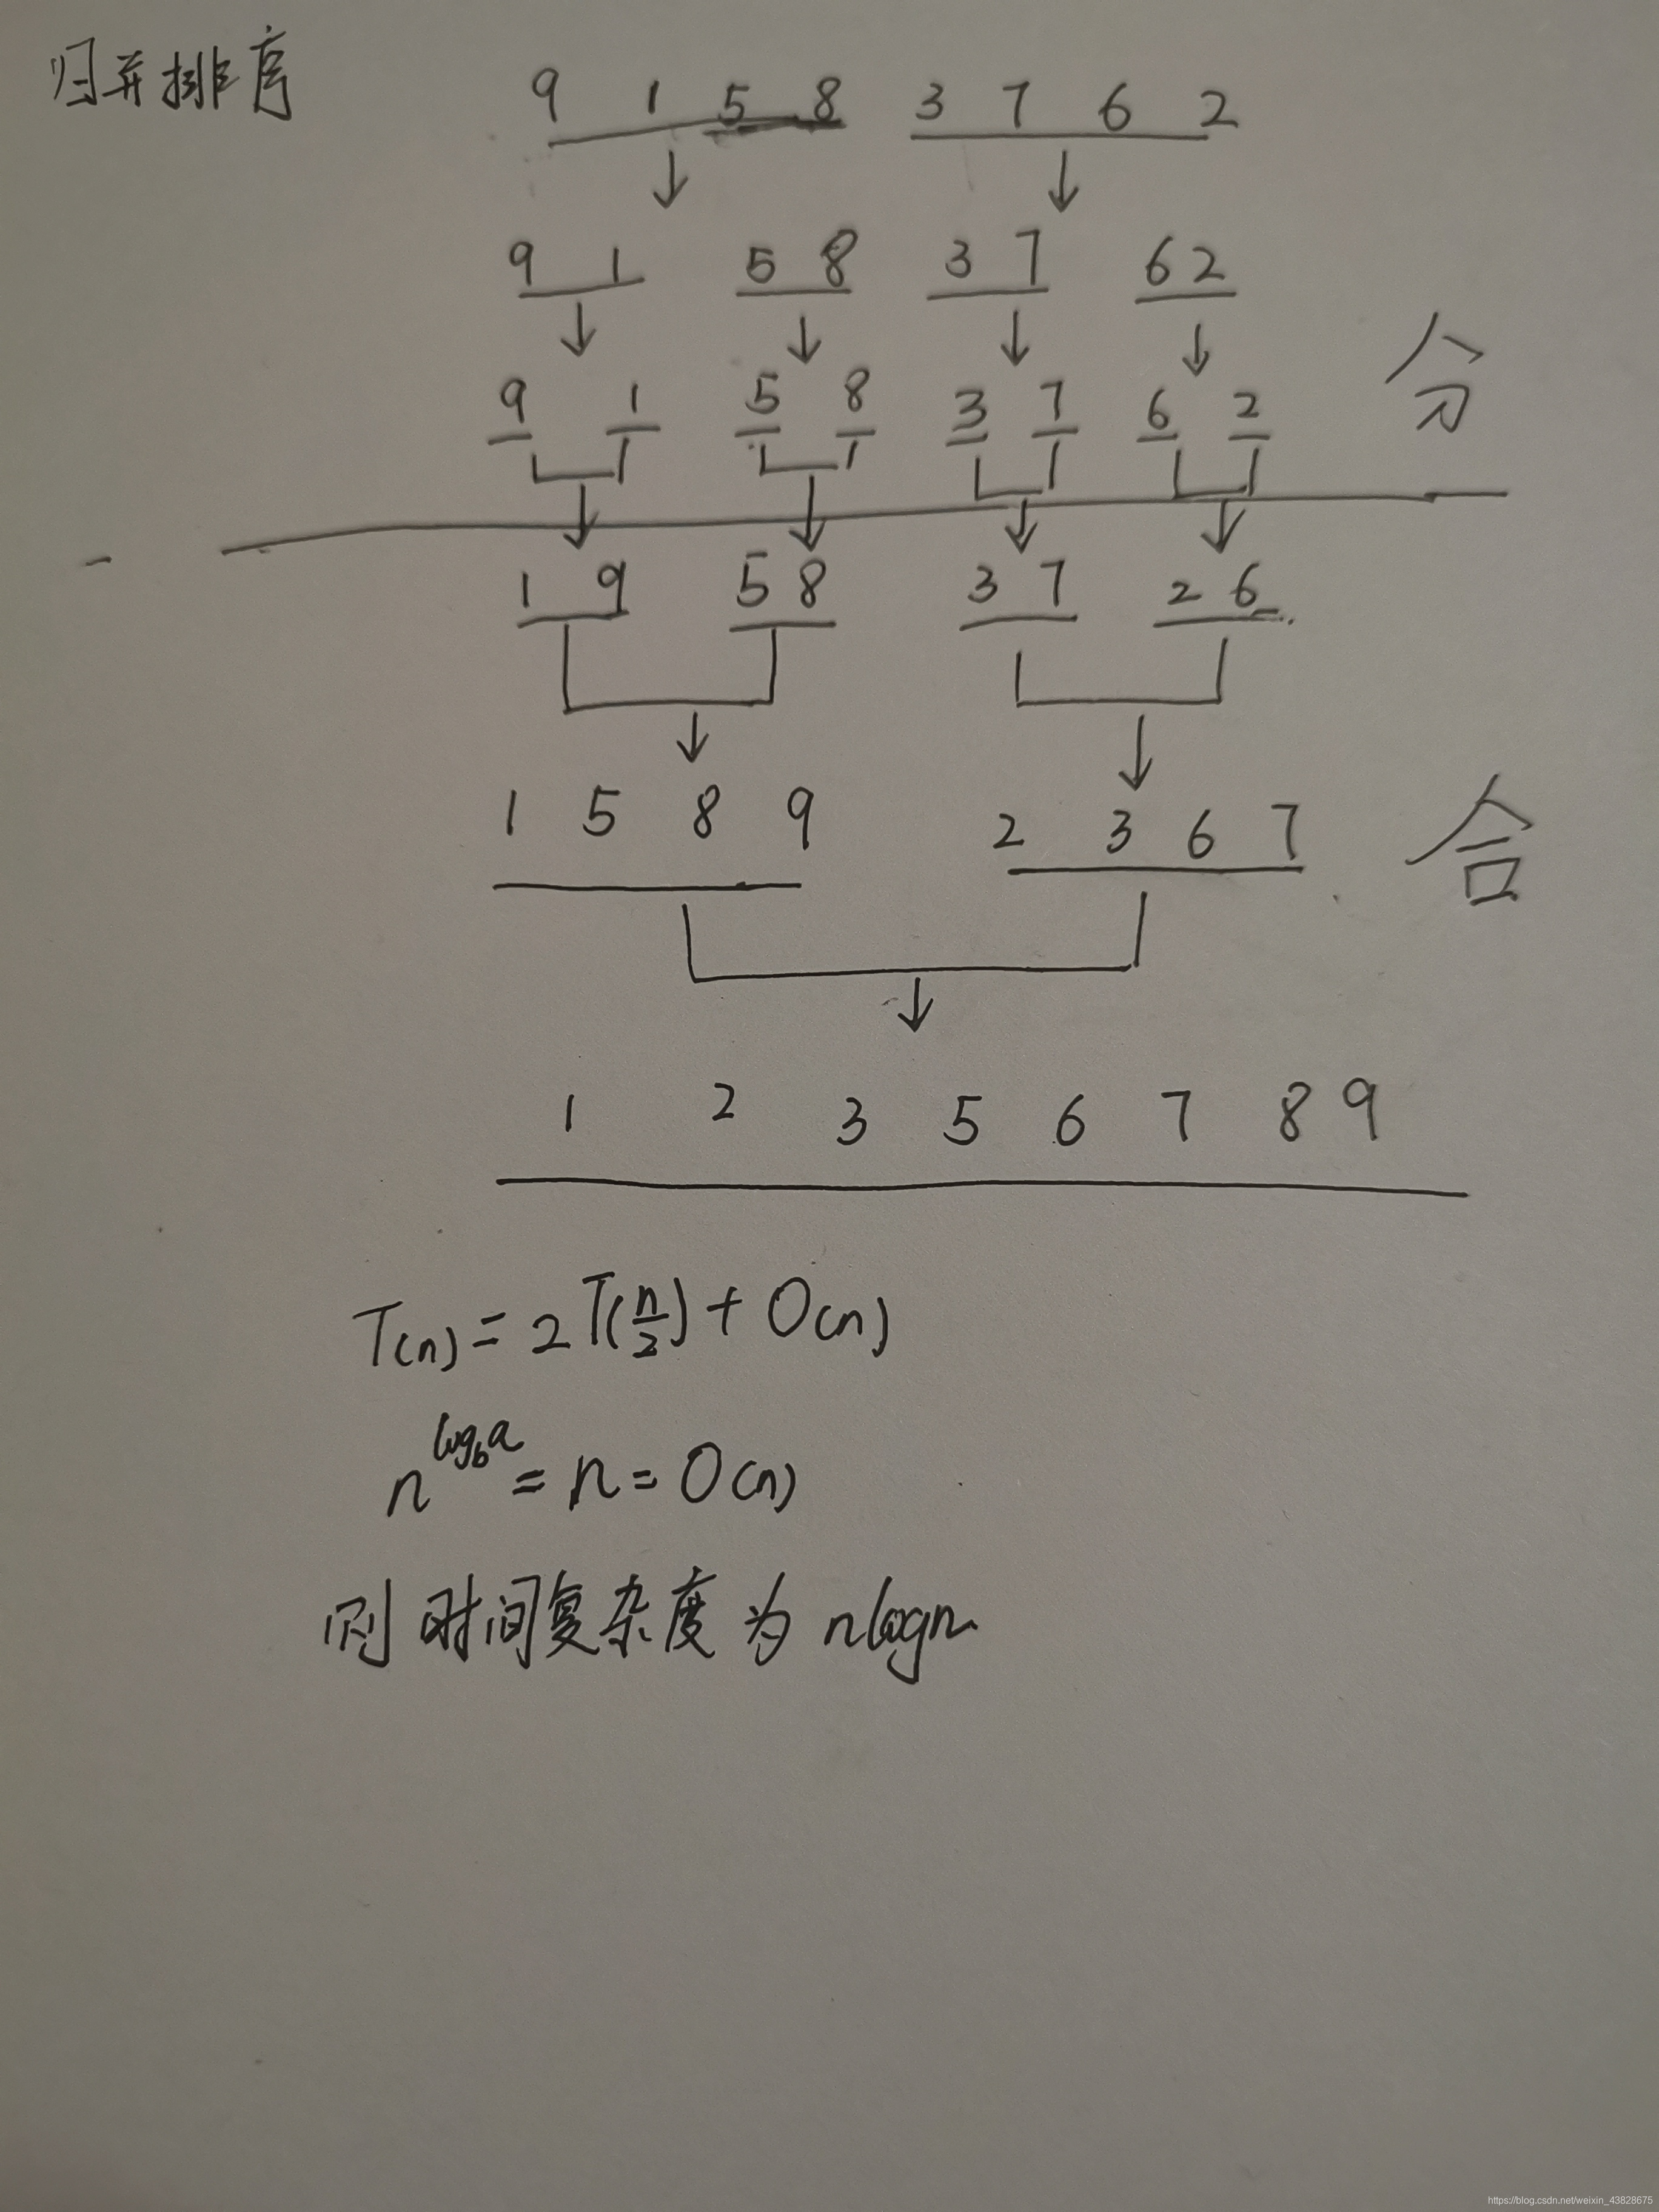 归并排序
9 1 5 8 3 7 6 2
9 1 5 8 3 7 6 2
分
9 1 5 8 3 7 6 2
1 9 5 8 3 7 2 6
1 5 8 9 2 3 6 7
合
1 2 3 5 6 7 8 9
T(n) = 2T(n/2) + O(n)
n^log_b a = n = O(n)
则时间复杂度为 nlogn
https://blog.csdn.net/weixin_43828675